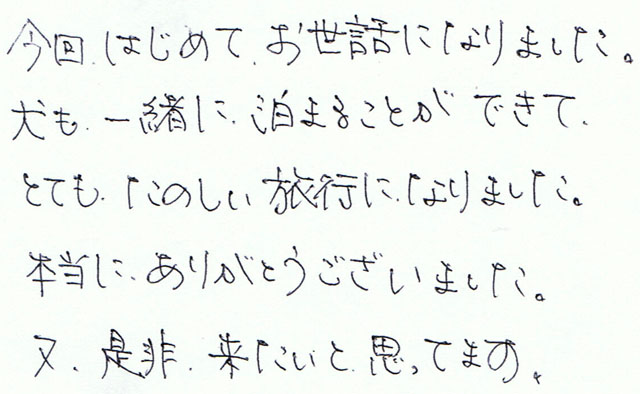 今回、はじめて、お世話になりました。
犬も、一緒に、泊まることができて、
とても、たのしい旅行に、なりました。
本当に、ありがとうございました。
又、是非、来たいと思ってます。